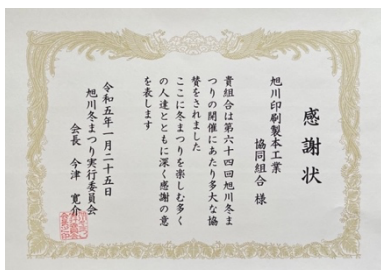 感謝状
旭川印刷製本工業
協同組合 様
貴組合は第六十四回旭川冬ま
つりの開催にあたり多大な協
賛をされました
ここに冬まつりを楽しむ多く
の人達とともに深く感謝の意
を表します
令和五年一月二十五日
旭川冬まつり実行委員会
会長 今津 寛介